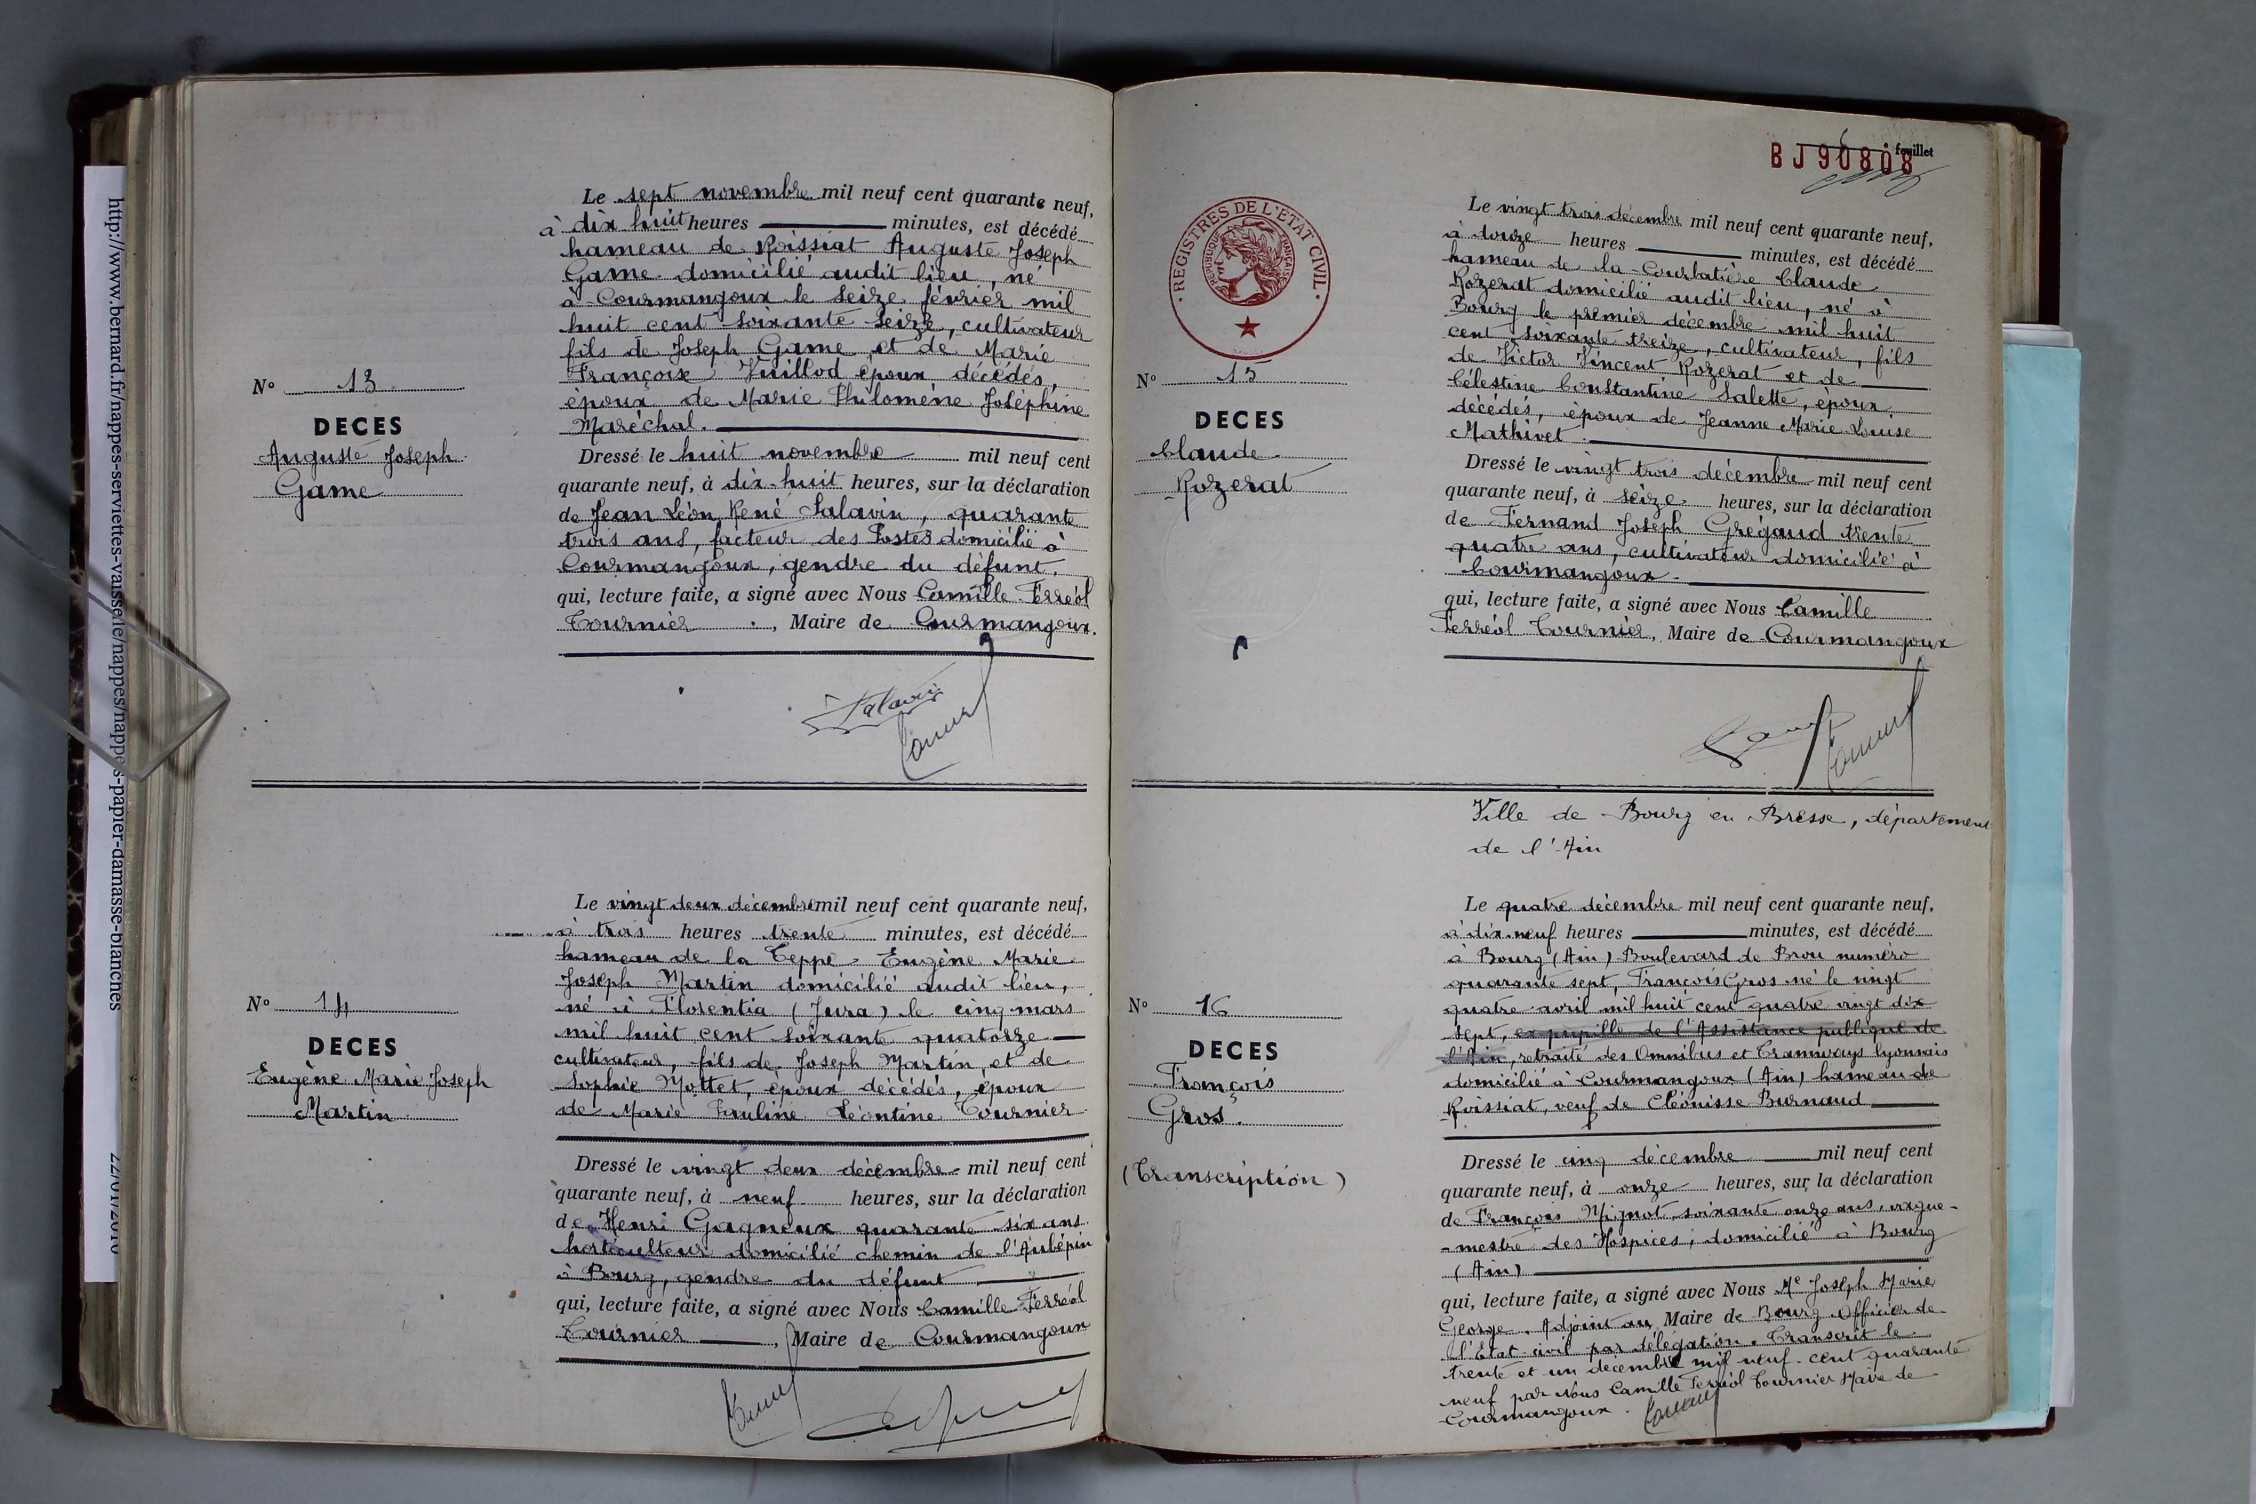 Le sept novembre mil neuf cent quarante neuf,
à dix huit heures minutes, est décédé
hameau de Roissiat Auguste Joseph
Game domicilié audit lieu, né
à Courmangoux le seize février mil
huit cent soixante seize, cultivateur
fils de Joseph Game et de Marie
Françoise Vuillod époux décédés,
époux de Marie Philomène Joséphine
Maréchal.
N° 13
DECES
Auguste Joseph
Game
Dressé le huit novembre mil neuf cent
quarante neuf, à dix-huit heures, sur la déclaration
de Jean Léon René Salavin, quarante
trois ans, facteur des Postes domicilié à
Courmangoux, gendre du défunt.
qui, lecture faite, a signé avec Nous Camille Ferréol
Tournier, Maire de Courmangoux.
Salavin
Le vingt deux décembre mil neuf cent quarante neuf,
à trois heures trente minutes, est décédé
hameau de la Teppe Eugène Marie
Joseph Martin domicilié audit lieu,
né à Florentia (Jura) le cinq mars
mil huit cent soixante quatorze
cultivateur, fils de Joseph Martin et de
Sophie Mottet, époux décédés, époux
de Marie Pauline Léontine Tournier
N° 14
DECES
Eugène Marie Joseph
Martin
Dressé le vingt deux décembre mil neuf cent
quarante neuf, à neuf heures, sur la déclaration
de Henri Gagneux quarante six ans
horticulteur domicilié chemin de l'Aubépin
à Bourg, gendre du défunt
qui, lecture faite, a signé avec Nous Camille Ferréol
Tournier, Maire de Courmangoux
feuillet
BJ90808
REGISTRES DE L'ETAT CIVIL
REPUBLIQUE FRANÇAISE
Le vingt trois décembre mil neuf cent quarante neuf,
à douze heures minutes, est décédé
hameau de la Courbatière Claude
Rozerat domicilié audit lieu, né à
Bourg le premier décembre mil huit
cent soixante treize, cultivateur, fils
de Victor Vincent Rozerat et de
Célestine Constantine Salette, époux
décédés, époux de Jeanne Marie Louise
Mathivet.
N° 15
DECES
Claude
Rozerat
Dressé le vingt trois décembre mil neuf cent
quarante neuf, à seize heures, sur la déclaration
de Fernand Joseph Grégaud trente
quatre ans, cultivateur domicilié à
Courmangoux.
qui, lecture faite, a signé avec Nous Camille
Ferréol Tournier, Maire de Courmangoux
Ville de Bourg en Bresse, département
de l'Ain
Le quatre décembre mil neuf cent quarante neuf,
à dix neuf heures minutes, est décédé
à Bourg (Ain) Boulevard de Brou numéro
quarante sept, François Gros né le vingt
quatre avril mil huit cent quatre vingt dix
sept, ex pupille de l'Assistance publique de
l'Ain, retraité des Omnibus et Tramways lyonnais
domicilié à Courmangoux (Ain) hameau de
Roissiat, veuf de Cléonisse Burnaud
N° 16
DECES
François
Gros.
(Transcription)
Dressé le cinq décembre mil neuf cent
quarante neuf, à onze heures, sur la déclaration
de François Mignot, soixante onze ans, vague-
-mestre des Hospices, domicilié à Bourg
(Ain)
qui, lecture faite, a signé avec Nous Me Joseph Marie
George, Adjoint au Maire de Bourg Officier de
l'Etat civil par délégation. Transcrit le
trente et un décembre mil neuf cent quarante
neuf par Nous Camille Ferréol Tournier Maire de
Courmangoux.
http://www.bernard.fr/nappes-serviettes-vaisselle/nappes/nappes-papier-damasse-blanches